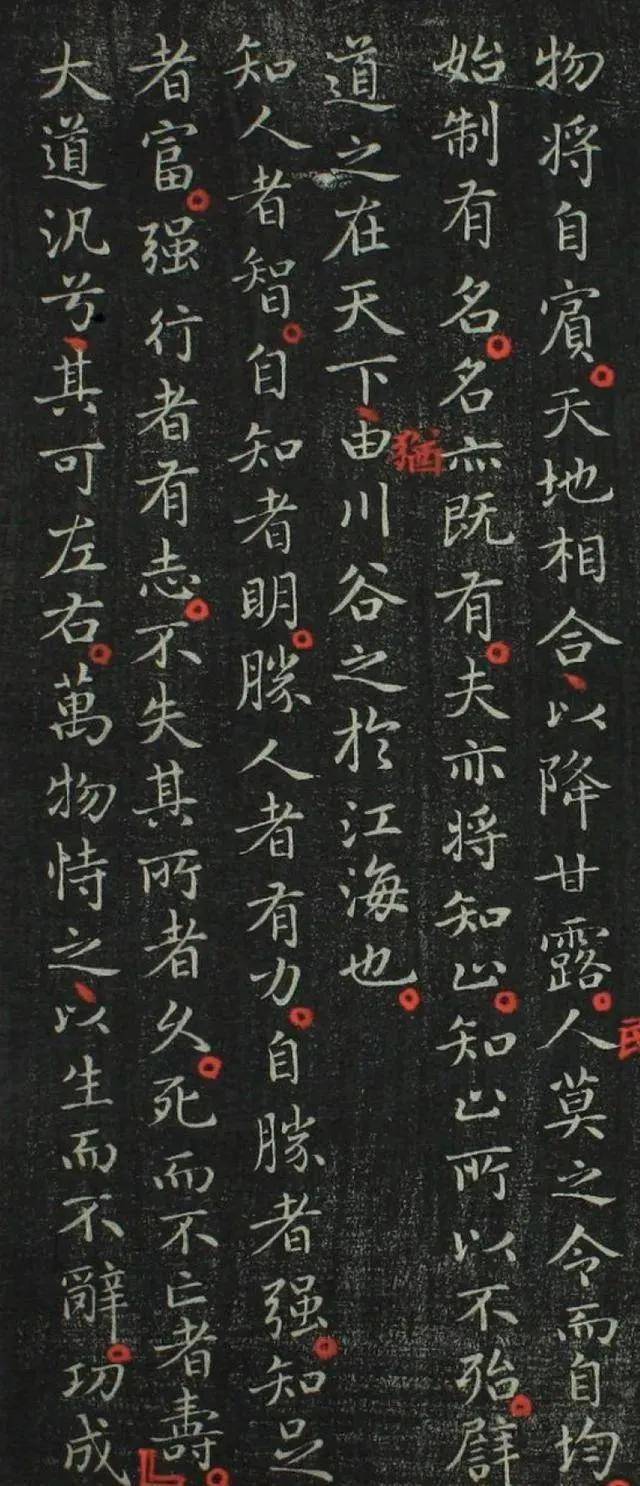 物将自賔天地相合以降甘露人莫之令而自均
民
始制有名名亦既有夫亦将知止知止所以不殆譬
道之在天下由川谷之於江海也
猶
知人者智自知者明勝人者有力自勝者强知足
者富强行者有志不失其所者久死而不亡者壽
大道汎兮其可左右萬物恃之以生而不辭功成